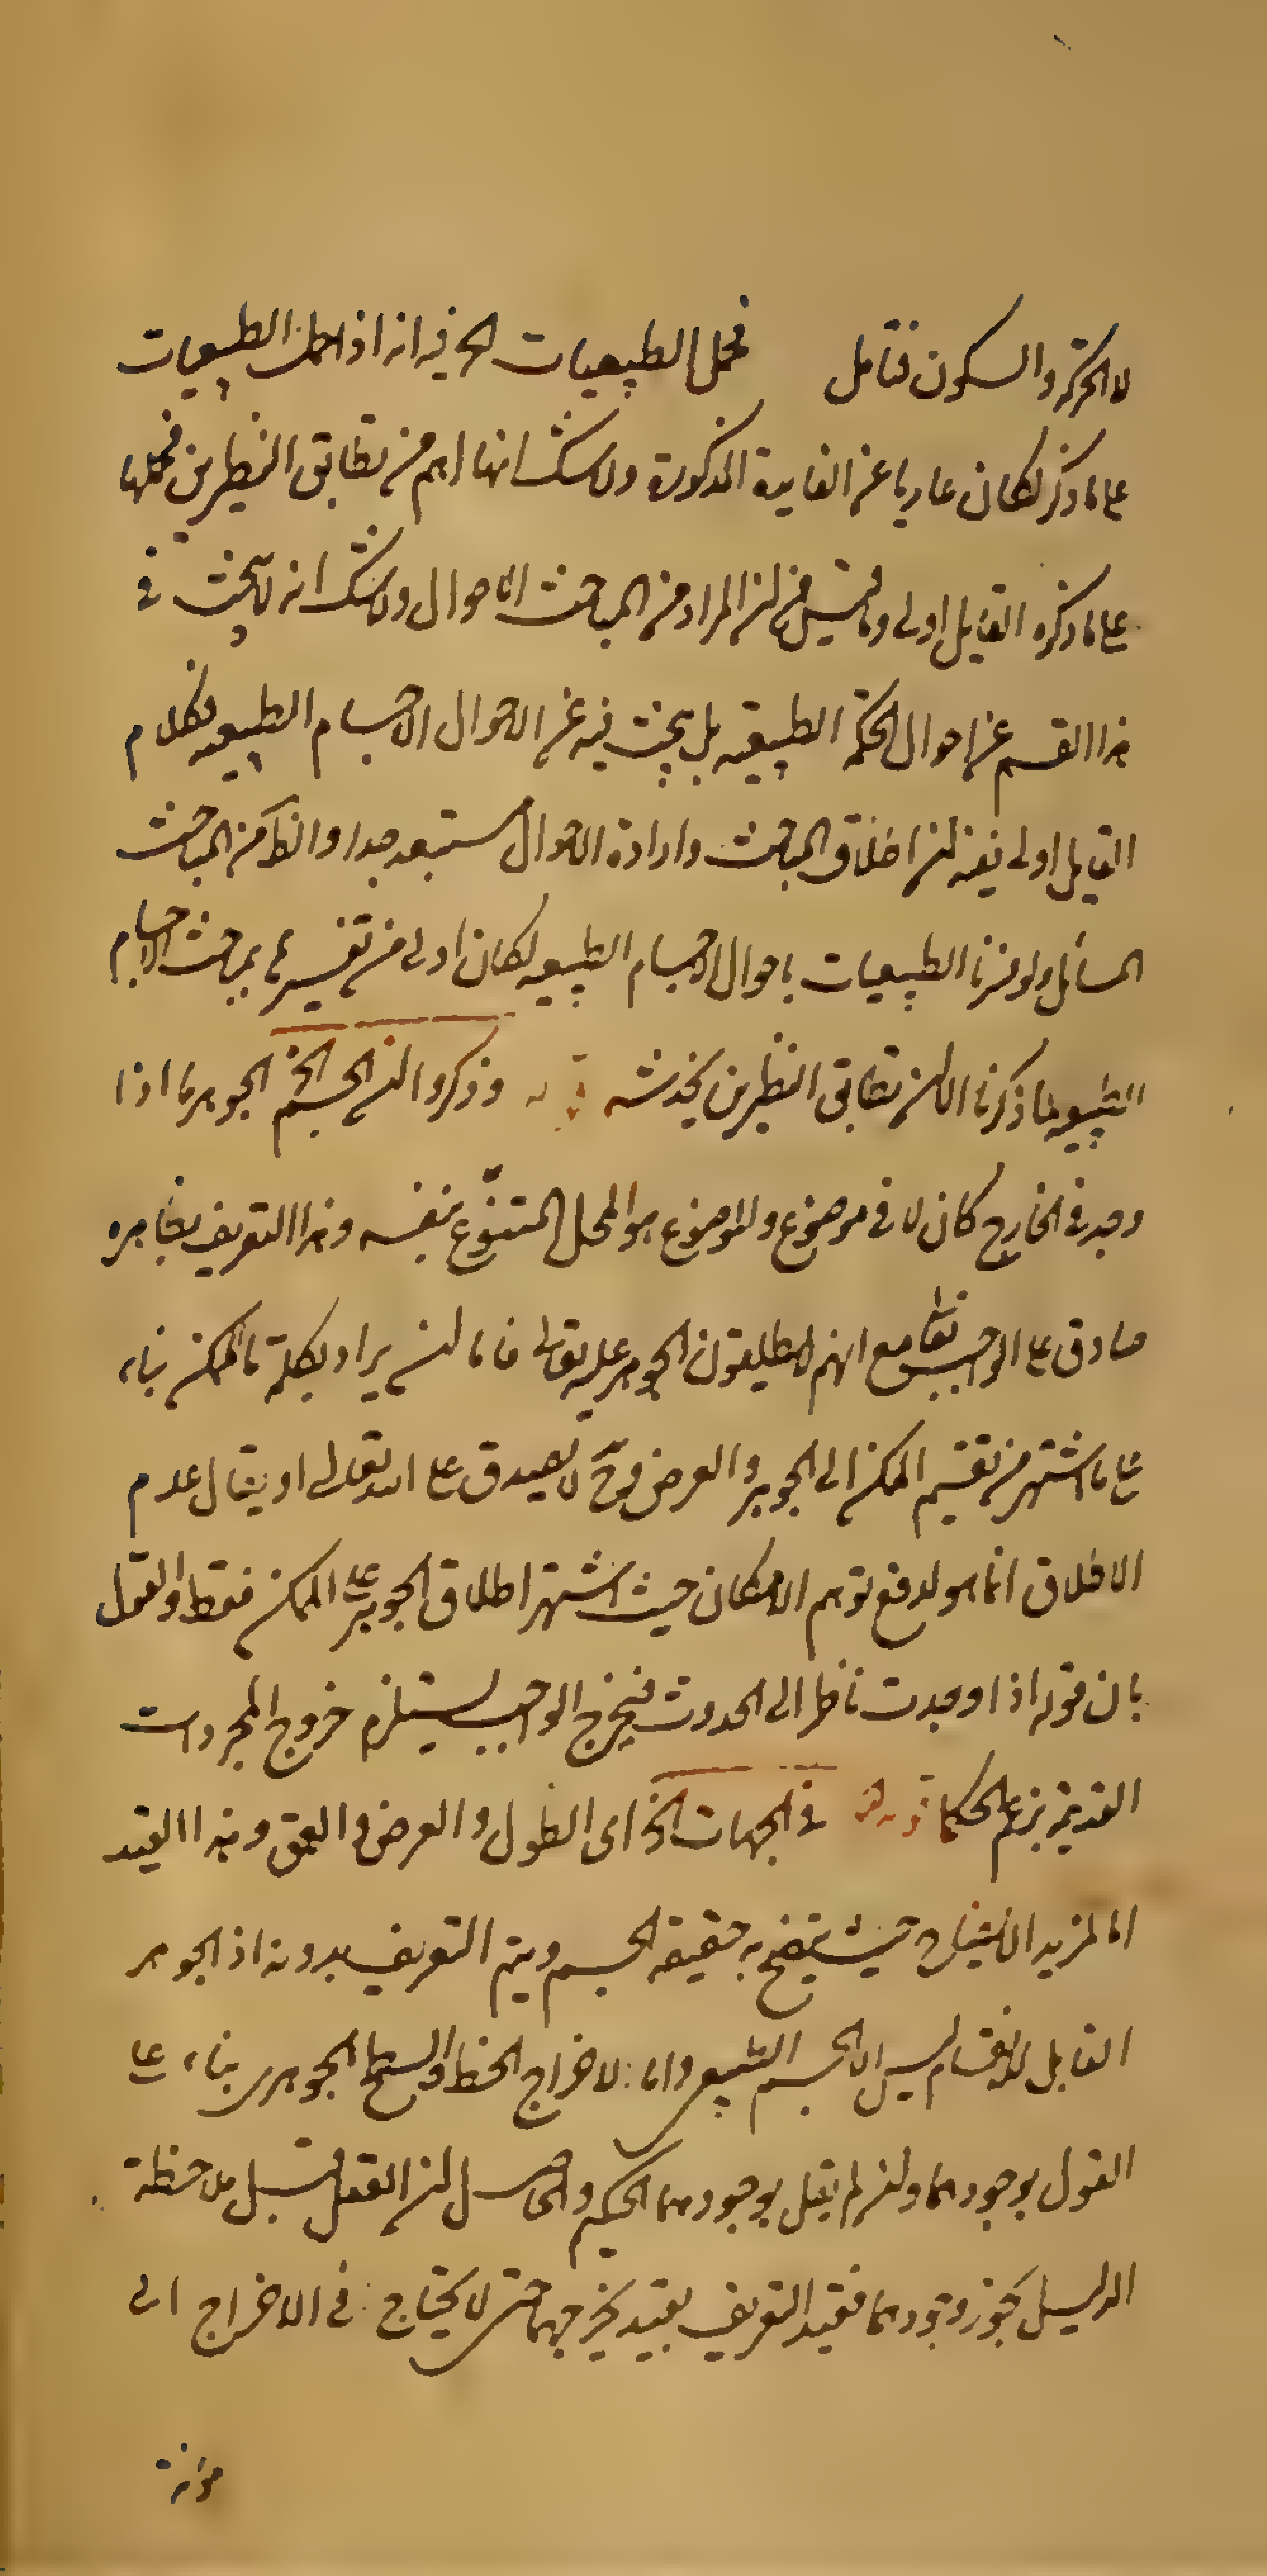 لا الحركة والسكون فتامل فحمل الطبيعيات الخ فيه انه اذا حمل الطبيعيات
على ما ذكر لكان عاريا عن الفايدة المذكورة ولا شك انها اهم من تطابق النظيرين فحملها
على ما ذكره القايل اولى وما قيل من ان المراد من المباحث الاحوال ولا شك انه لا يبحث في
هذا القسم عن احوال الحكمة الطبيعية بل يبحث فيه عن الاحوال الاجسام الطبيعيه فكلام
القايل اولى ففيه ان اطلاق المباحث وارادة الاحوال مستبعد جدا والظ من المباحث
المسائل ولو فسرنا الطبيعيات باحوال الاجسام الطبيعيه لكان اولى من تفسيرها بمباحث الاجسام
الطبيعيه لما ذكرنا الا ان تطابق النظيرين يخدشه قوله وذكروا ان الجسم الخ الجوهر ما اذا
وجد في الخارج كان لا في موضوع والموضوع هو المحل المتنوع بنفسه وهذا التعريف بظاهره
صادق على الواجب تعا مع انهم لا يطلقون الجوهر عليه تعالى فاما ان يراد بكلمة ما الممكن بناء
على ما اشتهر من تقسيم الممكن الى الجوهر والعرض وح لا يصدق على الله تعالى او يقال عدم
الاطلاق انما هو لدفع توهم الامكان حيث اشتهر اطلاق الجوهر على الممكن فقط والقول
بان قوله اذا وجدت ناظر الى الحدوث فيخرج الواجب يستلزم خروج المجردات
القديمة بزعم الحكما قوله في الجهات الخ اى الطول والعرض والعمق وهذا القيد
اما لمزيد حيث يتضح به حقيقة الجسم ويتم التعريف بدونه اذ الجوهر
القابل للانقسام ليس الا الجسم الطبيعى واما لاخراج الخط والسطح الجوهرى بناء على
القول بوجودهما وان لم يقل بوجودهما الحكيم والحاصل ان العقل قبل ملاحظة
الدليل يجوز وجودهما فقيد التعريف بقيد يخرجهما حتى لا يحتاج في الاخراج الى
مؤنة